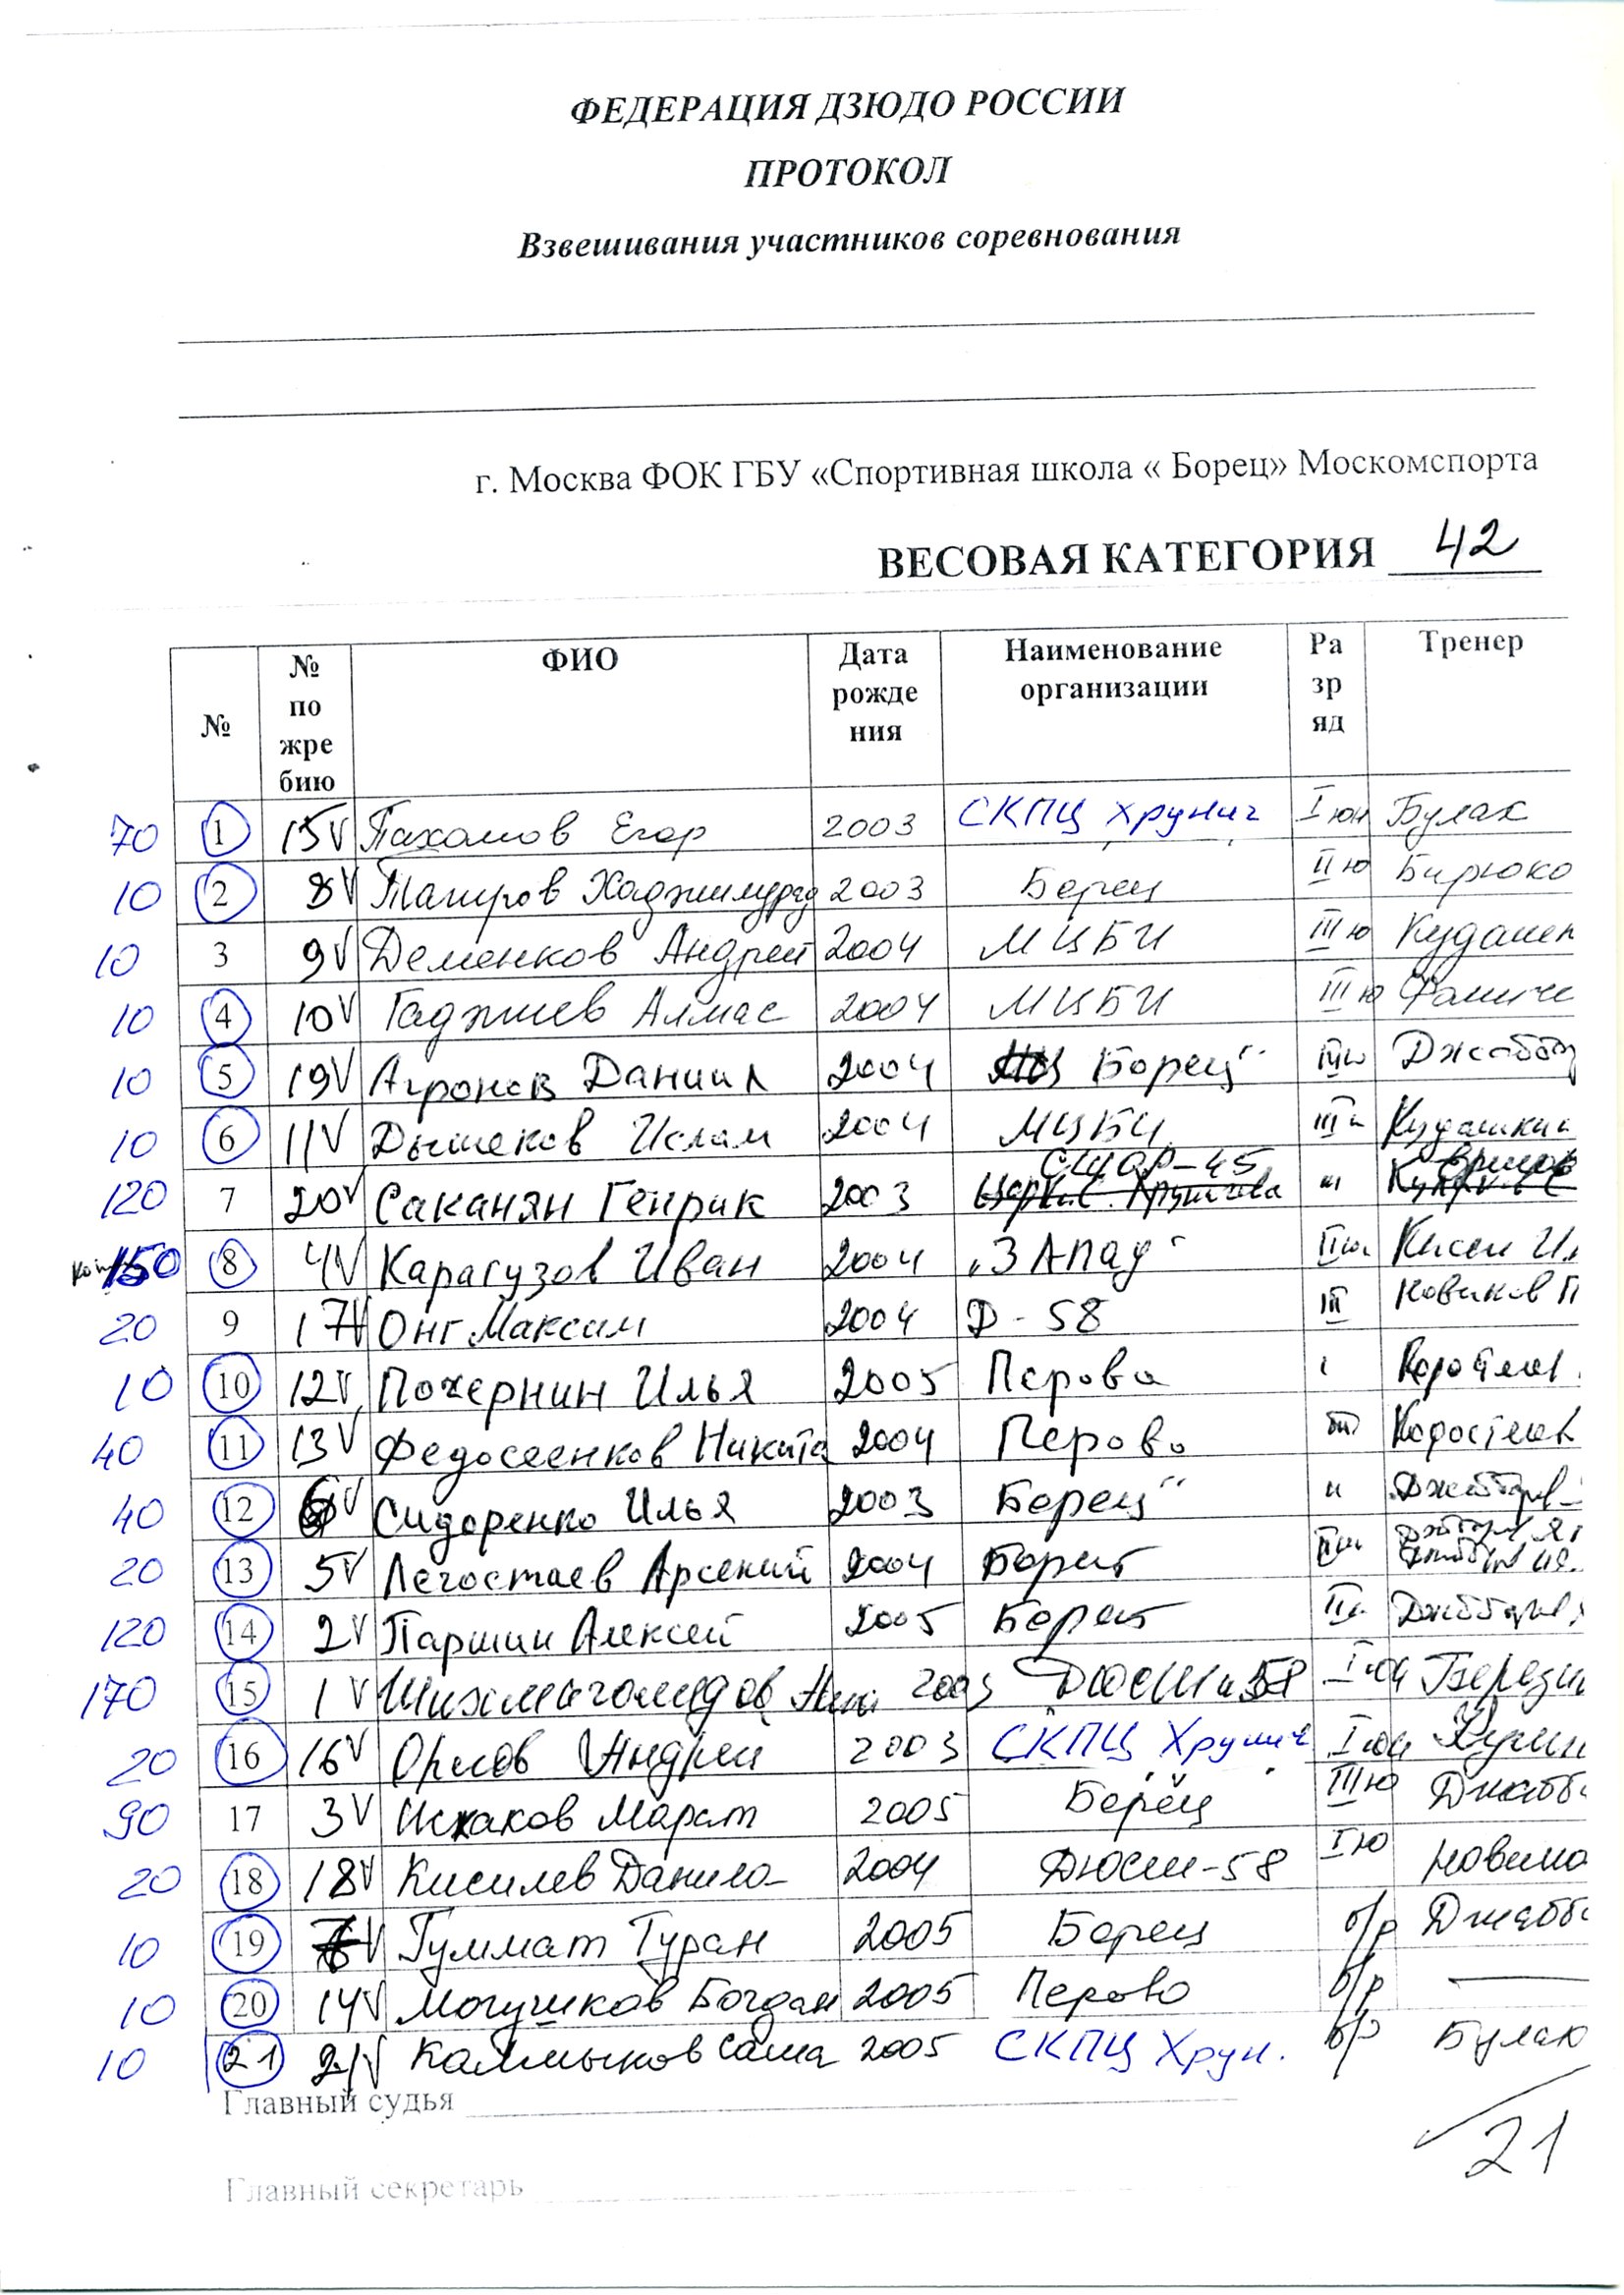 ФЕДЕРАЦИЯ ДЗЮДО РОССИИ
ПРОТОКОЛ
Взвешивания участников соревнования
г. Москва ФОК ГБУ «Спортивная школа « Борец» Москомспорта
ВЕСОВАЯ КАТЕГОРИЯ 42
№ № по жре бию ФИО Дата рожде ния Наименование организации Ра зр яд Тренер
70 1 15V Пахомов Егор 2003 СКПЦ Хрунич I юн Булак
10 2 8V Тагиров Хаджимурад 2003 Борец II ю Бирюко
10 3 9V Деменков Андрей 2004 МЦБИ III ю Кудашен
10 4 10V Гаджиев Алмас 2004 МЦБИ III ю
10 5 19V Агронов Даниил 2004 Борец" III ю
10 6 11V Дышеков Ислам 2004 МЦБИ III Кудашкин
120 7 20V Саканян Генрик 2003 СШОР-45
150 8 4V Карагузов Иван 2004 „ЗАПАД" Кисел Ил
20 9 17V Онг Максим 2004 Д-58 III Новиков П
10 10 12V Почернин Илья 2005 Перово
40 11 13V Федосеенков Никита 2004 Перово Коростелев
40 12 6V Сидоренко Илья 2003 Борец"
20 13 5V Легостаев Арсений 2004 Борец
120 14 2V Паршин Алексей 2005 Борец
170 15 1V Шихмагомедов ДЮСШ 58 I юн Березин
20 16 16V Орлов Андрей 2003 СКПЦ Хрунич I юн
90 17 3V Исхаков Марат 2005 Борец III ю Джабба
20 18 18V Кисилев Данила 2004 ДЮСШ-58 I ю Новико
10 19 7V Гуммат Туран 2005 Борец б/р Джабба
10 20 14V Могушков Богдан 2005 Перово б/р —
10 21 21V Калмыков Саша 2005 СКПЦ Хрун. б/р Булак
Главный судья
21
Главный секретарь